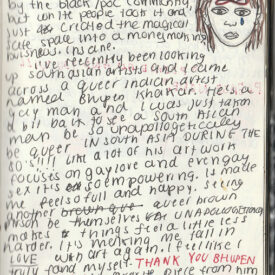 by the black/poc community,
but white people took it and
just created the magical
safe space into a moneymaking
insane.
I've recently been looking
up south asian artists and I came
across a queer indian artist
named Bhupen Khakhar. He's a
gay man and I was just taken
a bit back to see a South Asian
man be so unapologetically
be queer IN SOUTH ASIA DURING THE
80's!!!! Like a lot of his artwork
focuses on gay love and even gay
sex it's so empowering. Is made
me feel so full and happy. Seeing
another brown que queer brown
person be themselves UNAPOLOGETICALLY
makes things feel a little less
harder. It's making me fall in
LOVE with art again. I feel like I
truly found myself. THANK YOU BHUPEN
piece from him